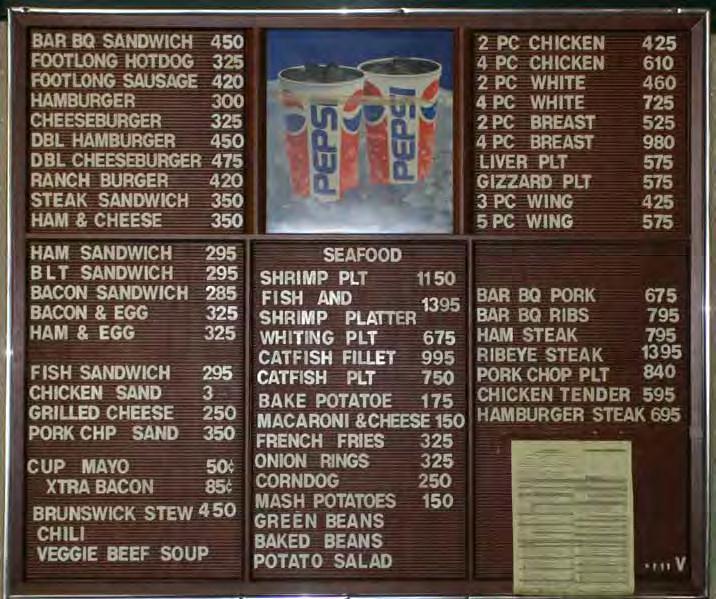 BAR BQ SANDWICH 450
FOOTLONG HOTDOG 325
FOOTLONG SAUSAGE 420
HAMBURGER 300
CHEESEBURGER 325
DBL HAMBURGER 450
DBL CHEESEBURGER 475
RANCH BURGER 420
STEAK SANDWICH 350
HAM & CHEESE 350
PEPSI PEPSI
2 PC CHICKEN 425
4 PC CHICKEN 610
2 PC WHITE 460
4 PC WHITE 725
2 PC BREAST 525
4 PC BREAST 980
LIVER PLT 575
GIZZARD PLT 575
3 PC WING 425
5 PC WING 575
HAM SANDWICH 295
BLT SANDWICH 295
BACON SANDWICH 285
BACON & EGG 325
HAM & EGG 325
FISH SANDWICH 295
CHICKEN SAND 3
GRILLED CHEESE 250
PORK CHP SAND 350
CUP MAYO 50¢
XTRA BACON 85¢
BRUNSWICK STEW 450
CHILI
VEGGIE BEEF SOUP
SEAFOOD
SHRIMP PLT 1150
FISH AND
SHRIMP PLATTER 1395
WHITING PLT 675
CATFISH FILLET 995
CATFISH PLT 750
BAKE POTATOE 175
MACARONI & CHEESE 150
FRENCH FRIES 325
ONION RINGS 325
CORNDOG 250
MASH POTATOES 150
GREEN BEANS
BAKED BEANS
POTATO SALAD
BAR BQ PORK 675
BAR BQ RIBS 795
HAM STEAK 795
RIBEYE STEAK 1395
PORK CHOP PLT 840
CHICKEN TENDER 595
HAMBURGER STEAK 695
V